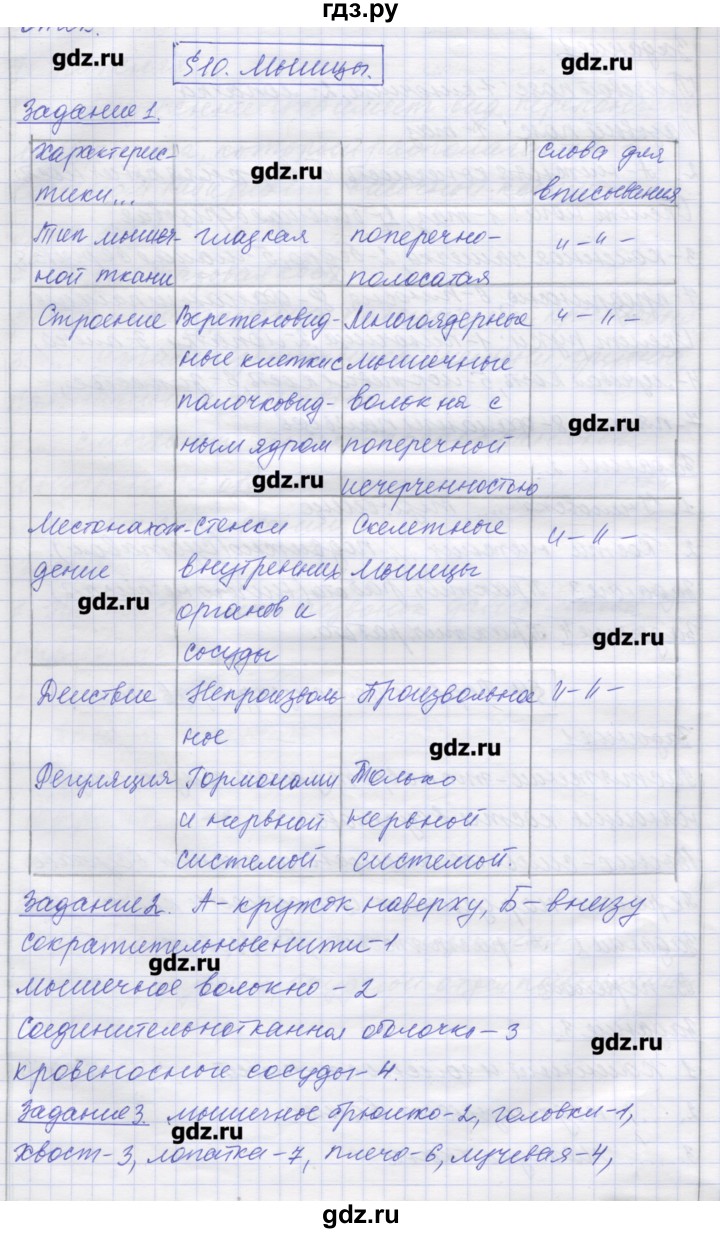 гдз.ру
§10. Мышцы.
gdz.ru
gdz.ru
Задание 1.
Характерис-
тики...
слова для
вписывания
gdz.ru
Тип мышеч-
ной ткани
гладкая
поперечно-
полосатая
"-"-
Строение
Веретеновид-
ные клетки с
палочковид-
ным ядром
Многоядерные
мышечные
волокна с
поперечной
исчерченностью
"-"-
gdz.ru
gdz.ru
Местонахож-
дение
стенки
внутренних
органов и
сосуды
Скелетные
мышцы
"-"-
gdz.ru
gdz.ru
Действие
Непроизволь
ное
Произвольное
"-"-
gdz.ru
Регуляция
Гормонами
и нервной
системой
Только
нервной
системой.
Задание 2. А-кружок наверху, Б-внизу
сократительные нити-1
gdz.ru
мышечное волокно-2
Соединительнотканная оболочка-3
gdz.ru
кровеносные сосуды-4.
Задание 3. мышечное брюшко-2, головки-1,
gdz.ru
хвост-3, лопатка-7, плечо-6, лучевая-4,
gdz.ru